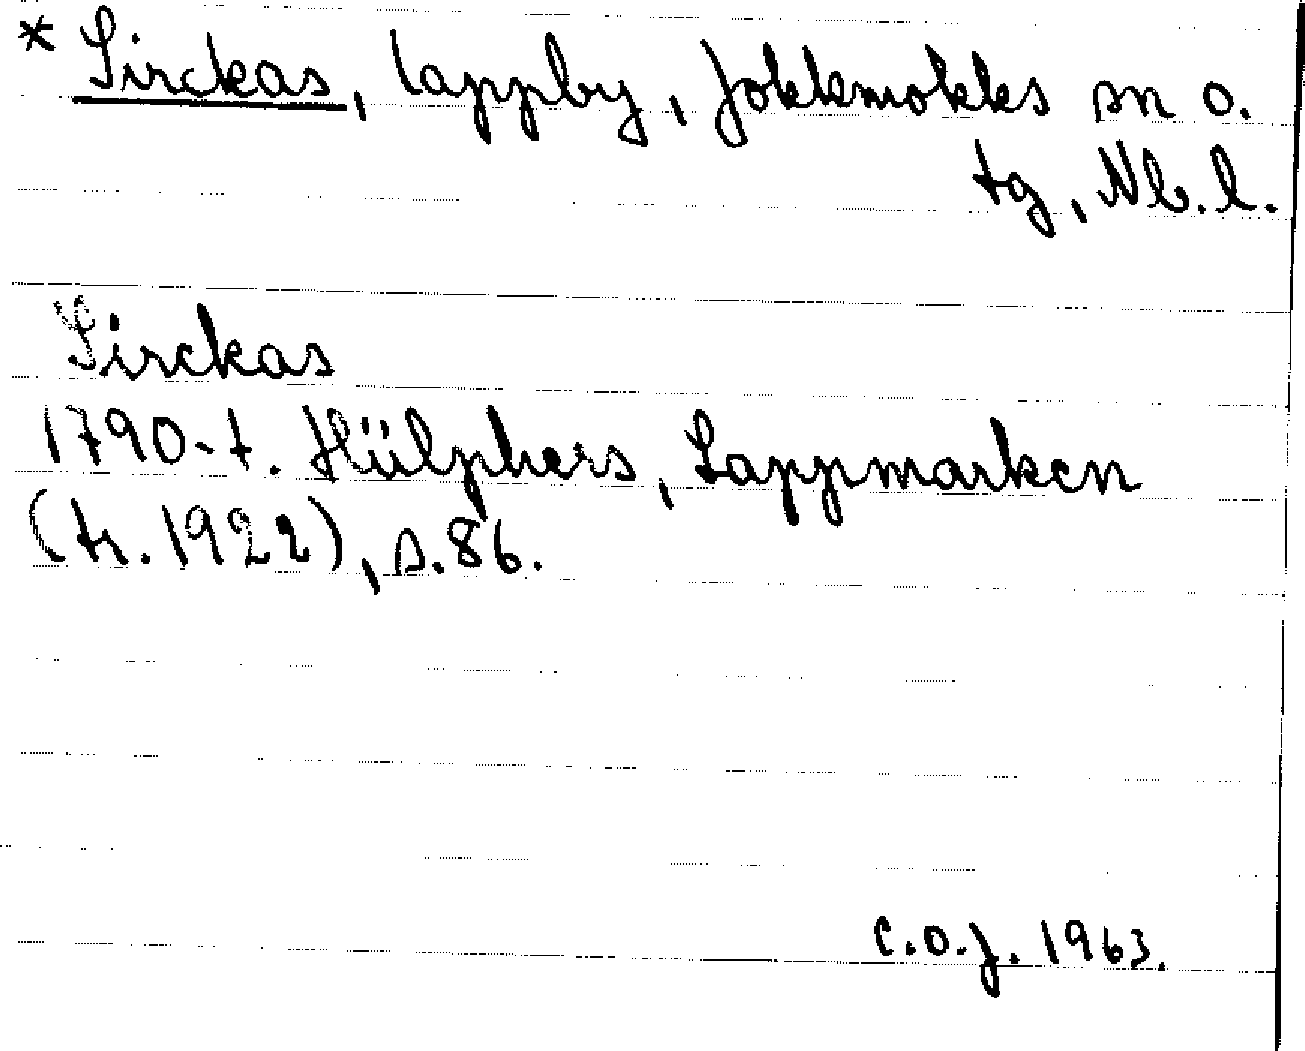 * Sirckas, lappby, Jokkmokks sn o.
tg, Nb. l.
Sirckas
1790-t. Hülphers, Lappmarken
(tr. 1922), s. 86.
C.O.J. 1963.